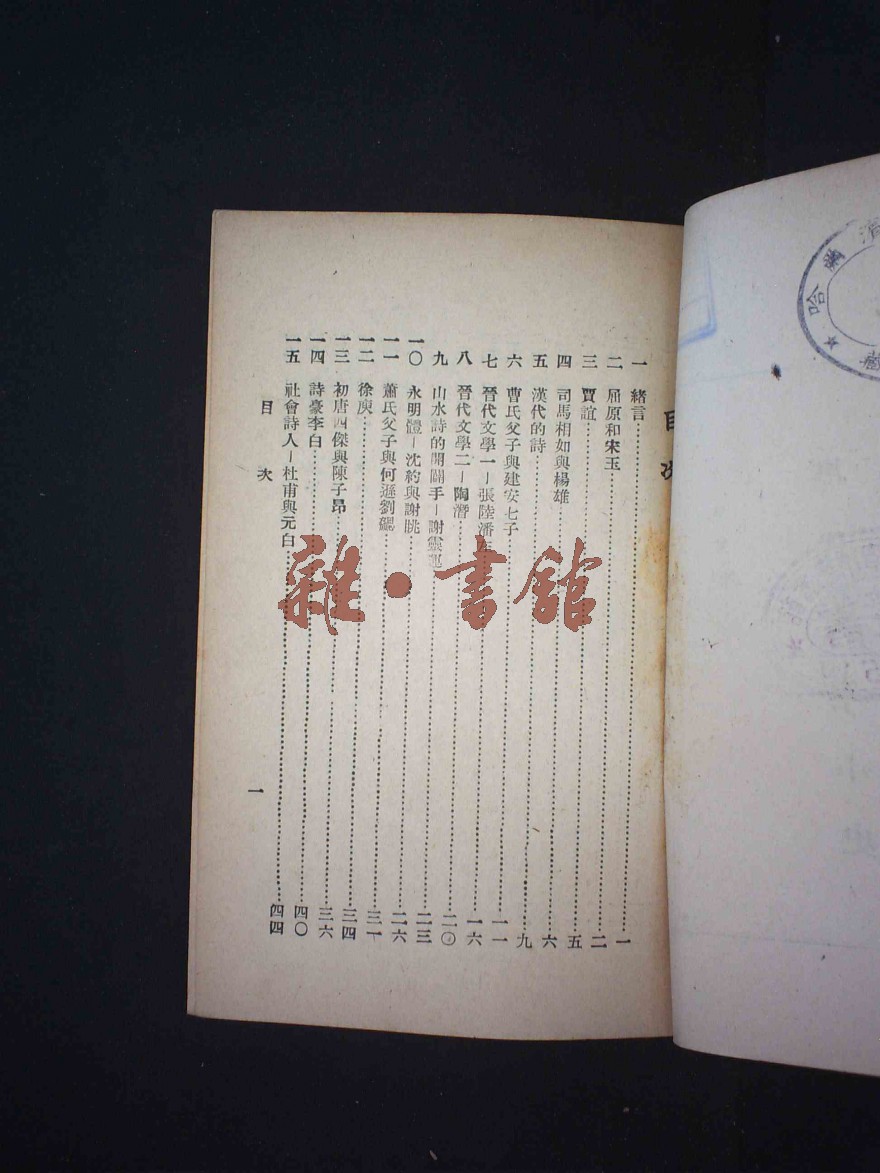 目次
一 緒言 一
二 屈原和宋玉 二
三 賈誼 五
四 司馬相如與楊雄 六
五 漢代的詩 九
六 曹氏父子與建安七子 一一
七 晉代文學一—張陸潘左 一六
八 晉代文學二—陶潛 二〇
九 山水詩的開闢手—謝靈運 二三
一〇 永明體—沈約與謝眺 二六
一一 蕭氏父子與何遜劉勰 三一
一二 徐庾 三四
一三 初唐四傑與陳子昂 三六
一四 詩豪李白 四〇
一五 社會詩人—杜甫與元白 四四
目次
一
雜·書館
哈爾濱